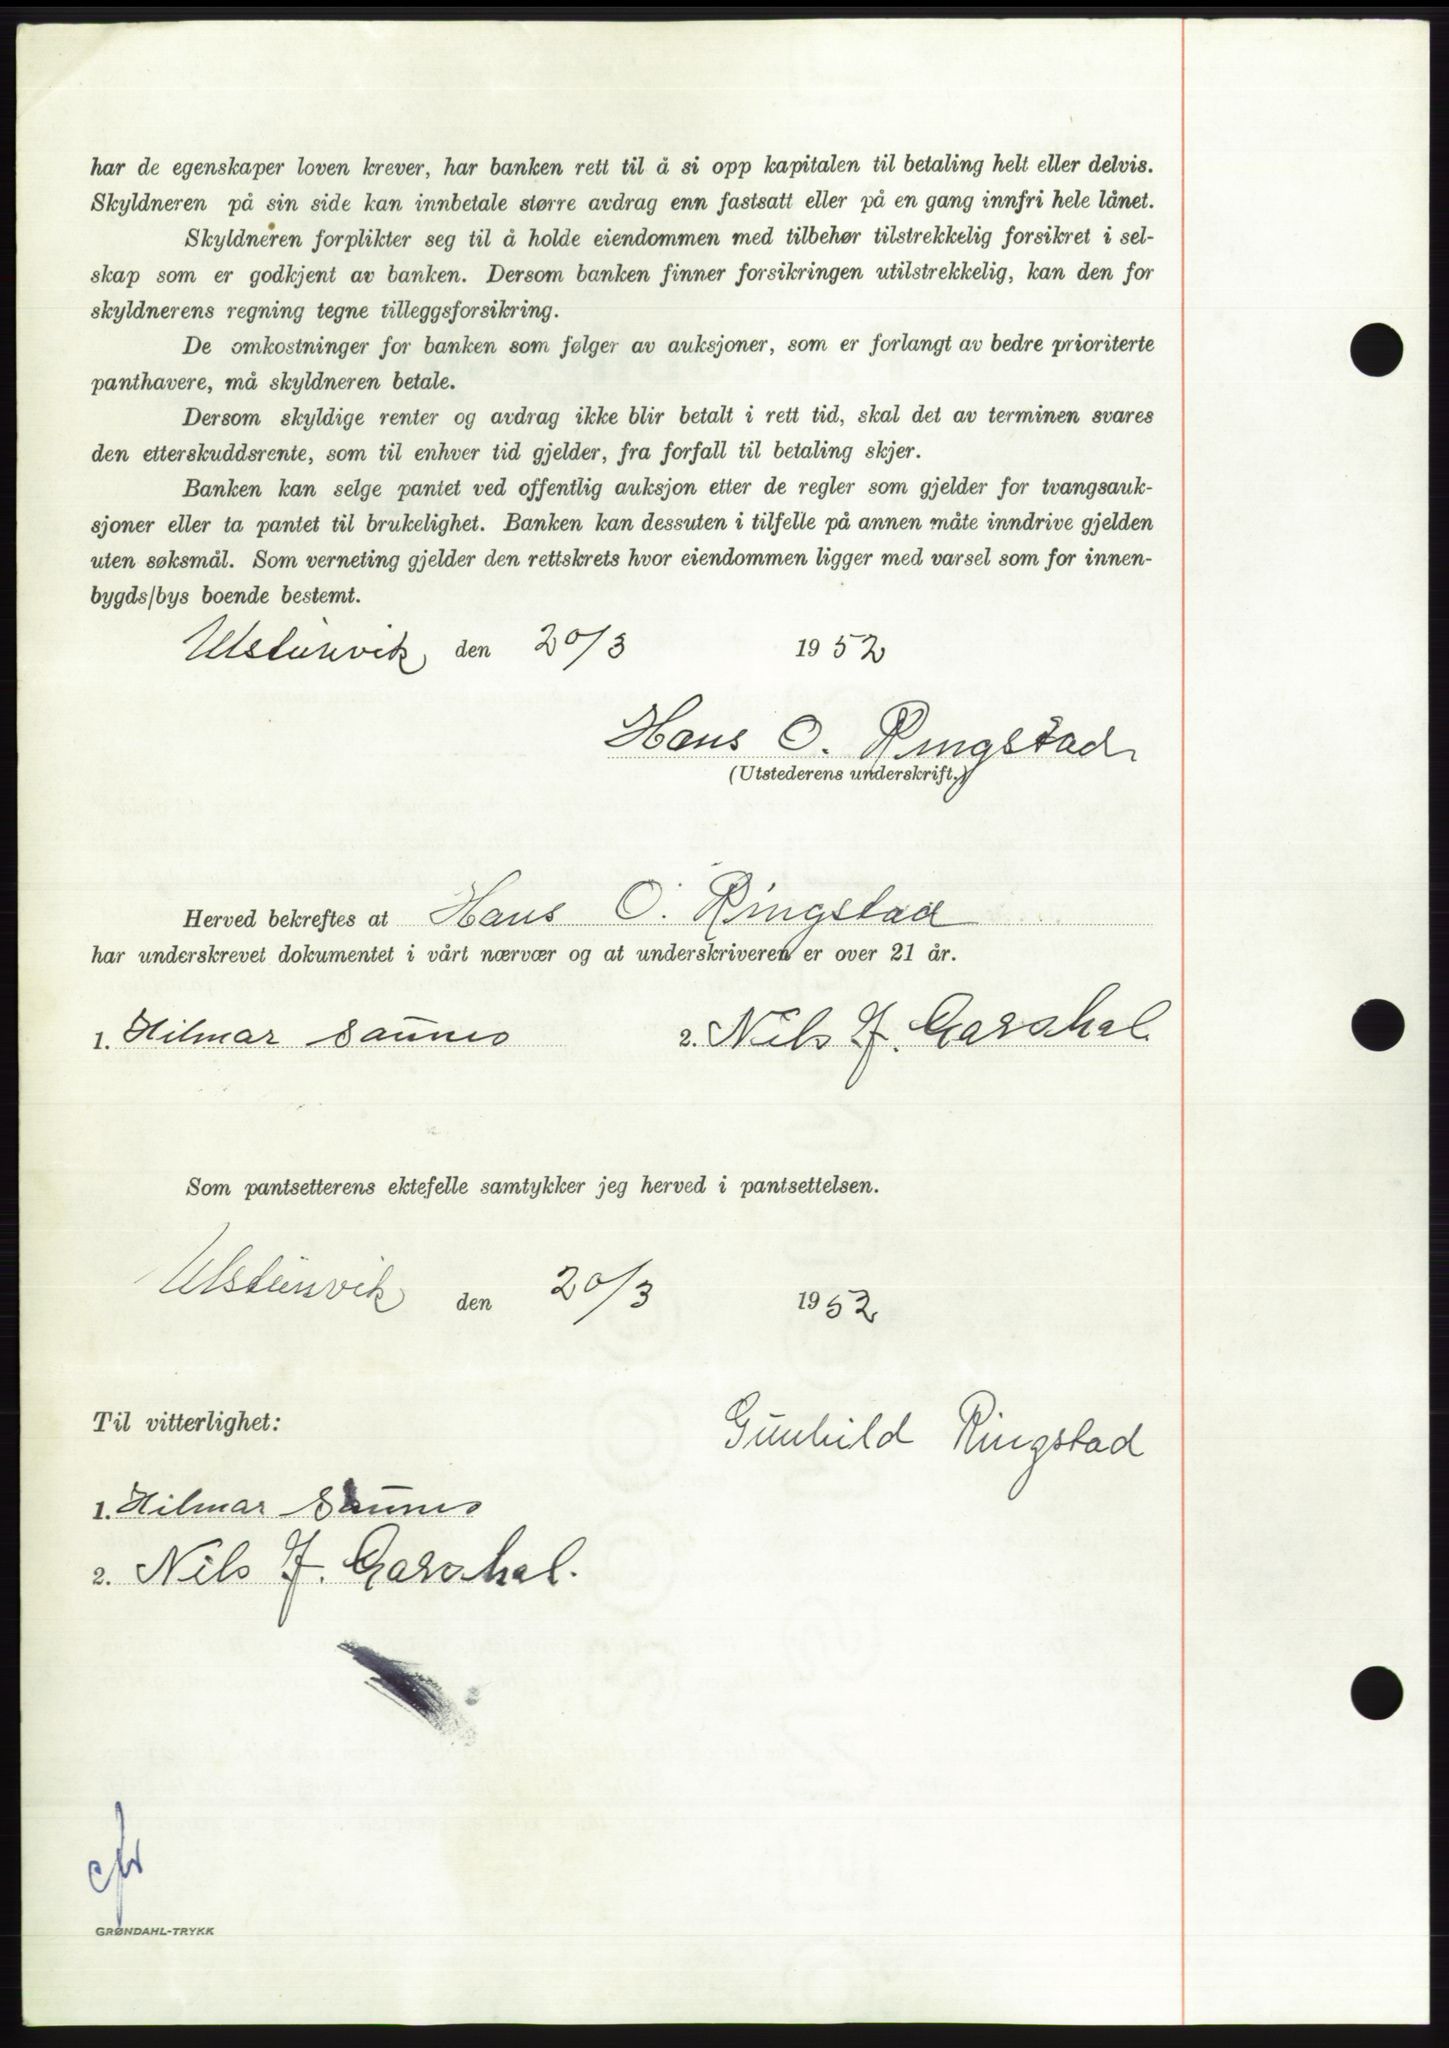 har de egenskaper loven krever, har banken rett til å si opp kapitalen til betaling helt eller delvis.
Skyldneren på sin side kan innbetale større avdrag enn fastsatt eller på en gang innfri hele lånet.
Skyldneren forplikter seg til å holde eiendommen med tilbehør tilstrekkelig forsikret i sel-
skap som er godkjent av banken. Dersom banken finner forsikringen utilstrekkelig, kan den for
skyldnerens regning tegne tilleggsforsikring.
De omkostninger for banken som følger av auksjoner, som er forlangt av bedre prioriterte
panthavere, må skyldneren betale.
Dersom skyldige renter og avdrag ikke blir betalt i rett tid, skal det av terminen svares
den etterskuddsrente, som til enhver tid gjelder, fra forfall til betaling skjer.
Banken kan selge pantet ved offentlig auksjon etter de regler som gjelder for tvangsauk-
sjoner eller ta pantet til brukelighet. Banken kan dessuten i tilfelle på annen måte inndrive gjelden
uten søksmål. Som verneting gjelder den rettskrets hvor eiendommen ligger med varsel som for innen-
bygds/bys boende bestemt.
Ulsteinvik den 20/3 1952
Hans O. Ringstad
(Utstederens underskrift.)
Herved bekreftes at Hans O. Ringstad
har underskrevet dokumentet i vårt nærvær og at underskriveren er over 21 år.
1. Hilmar Saunes 2. Nils J. Garshol.
Som pantsetterens ektefelle samtykker jeg herved i pantsettelsen.
Ulsteinvik den 20/3 1952
Til vitterlighet:
Gunhild Ringstad
1. Hilmar Saunes
2. Nils J. Garshol.
GRØNDAHL-TRYKK